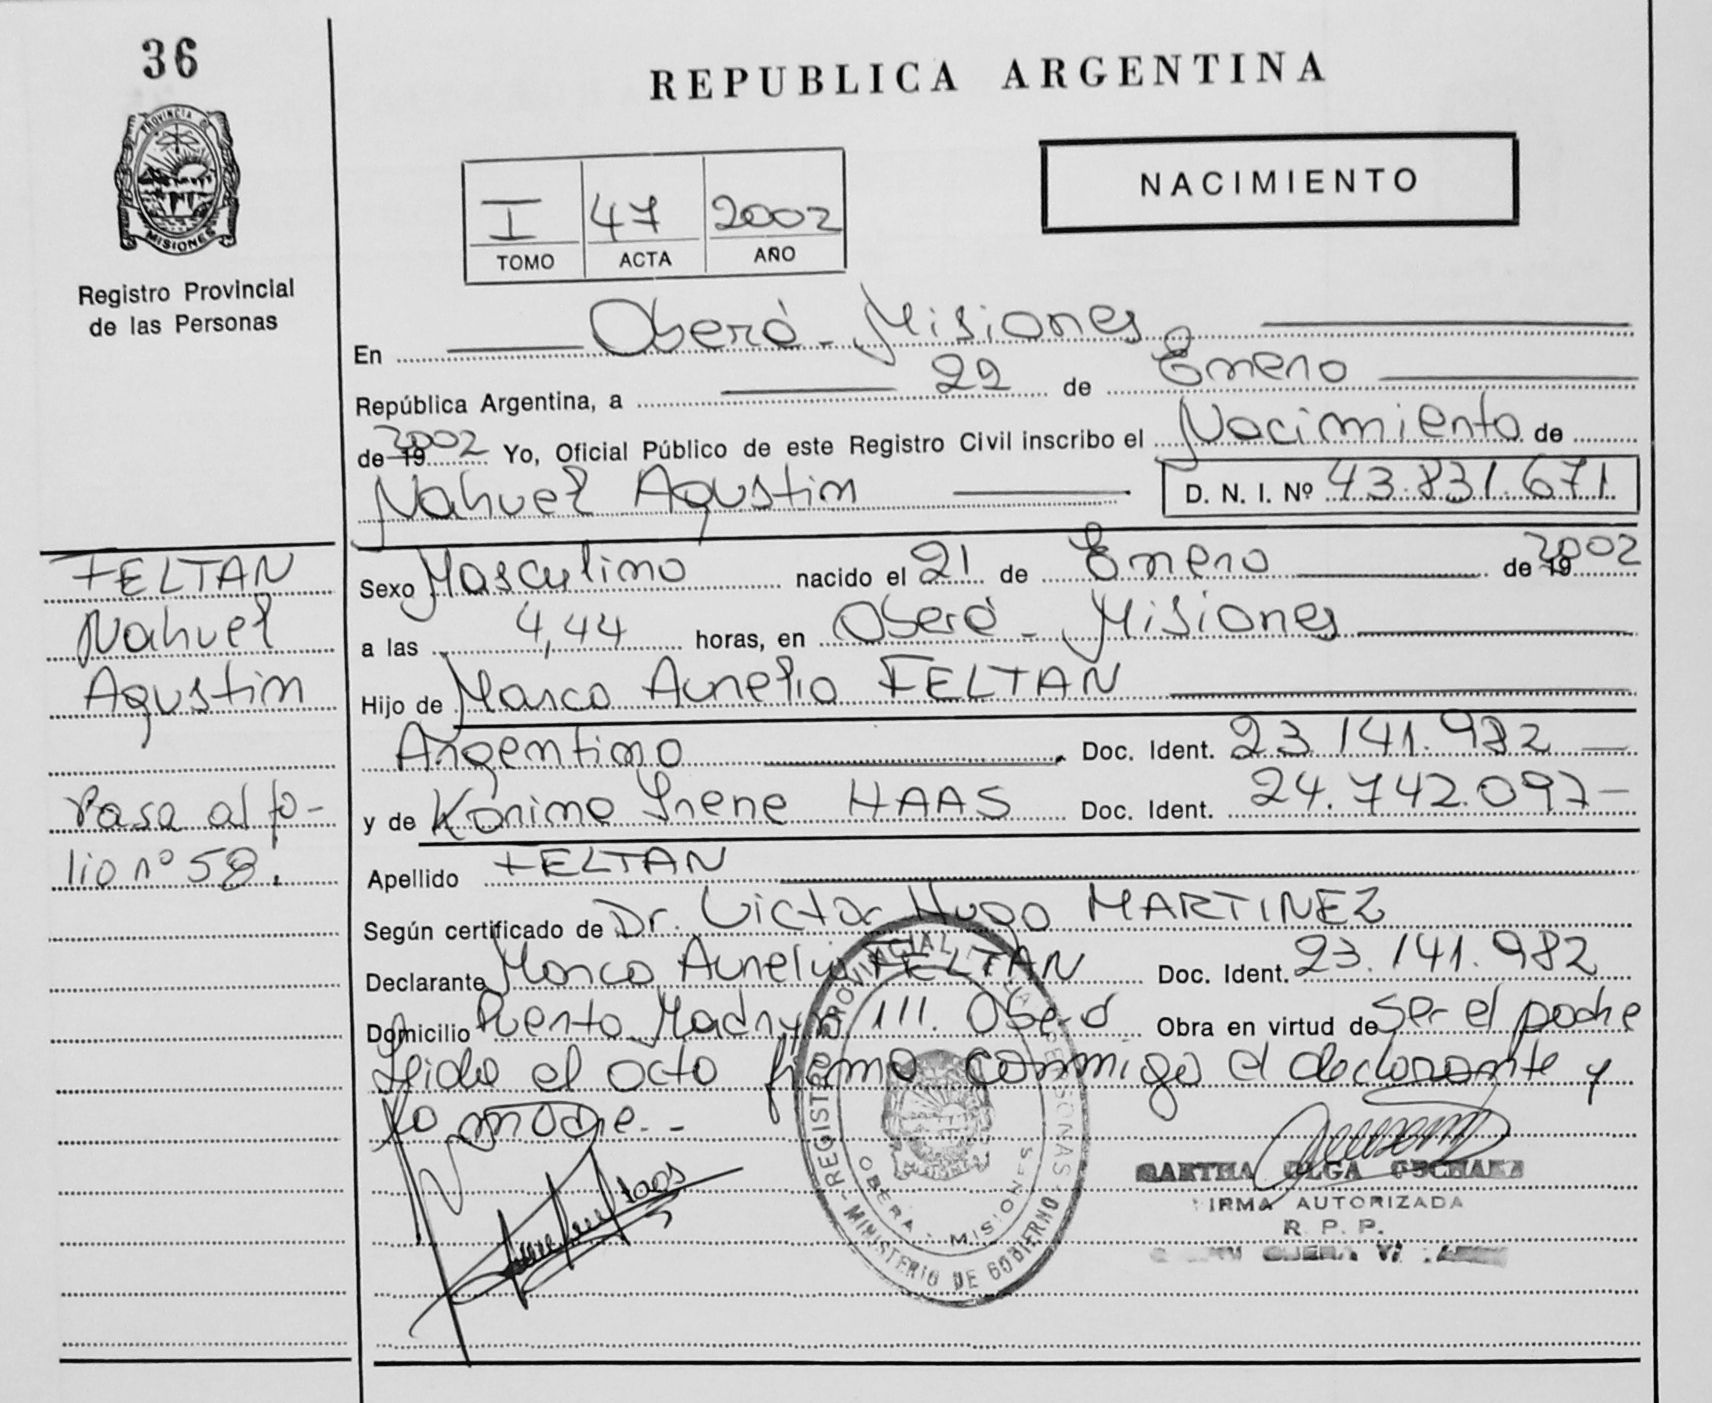 36
PROVINCIA DE
MISIONES
Registro Provincial
de las Personas
REPUBLICA ARGENTINA
I 47 2002
TOMO ACTA AÑO
NACIMIENTO
En Oberá - Misiones
República Argentina, a 22 de Enero
de 19 2002 Yo, Oficial Público de este Registro Civil inscribo el Nacimiento de
Nahuel Agustin D. N. I. Nº 43.831.671
Sexo Masculino nacido el 21 de Enero de 19 2002
a las 4,44 horas, en Oberá - Misiones
Hijo de Marco Aurelio FELTAN
Argentino Doc. Ident. 23.141.982
y de Karina Irene HAAS Doc. Ident. 24.742.097
Apellido FELTAN
Según certificado de Dr. Victor Hugo MARTINEZ
Declarante Marco Aurelio FELTAN Doc. Ident. 23.141.982
Domicilio Puerto Madryn 111. Oberá Obra en virtud de Ser el padre
Leida el acta firma conmigo el declarante y
la madre.-
FELTAN
Nahuel
Agustin
Pasa al fo-
lio nº 58.
REGISTRO PROVINCIAL DE LAS PERSONAS
OBERA - MISIONES
MINISTERIO DE GOBIERNO
OLGA
FIRMA AUTORIZADA
R. P. P.